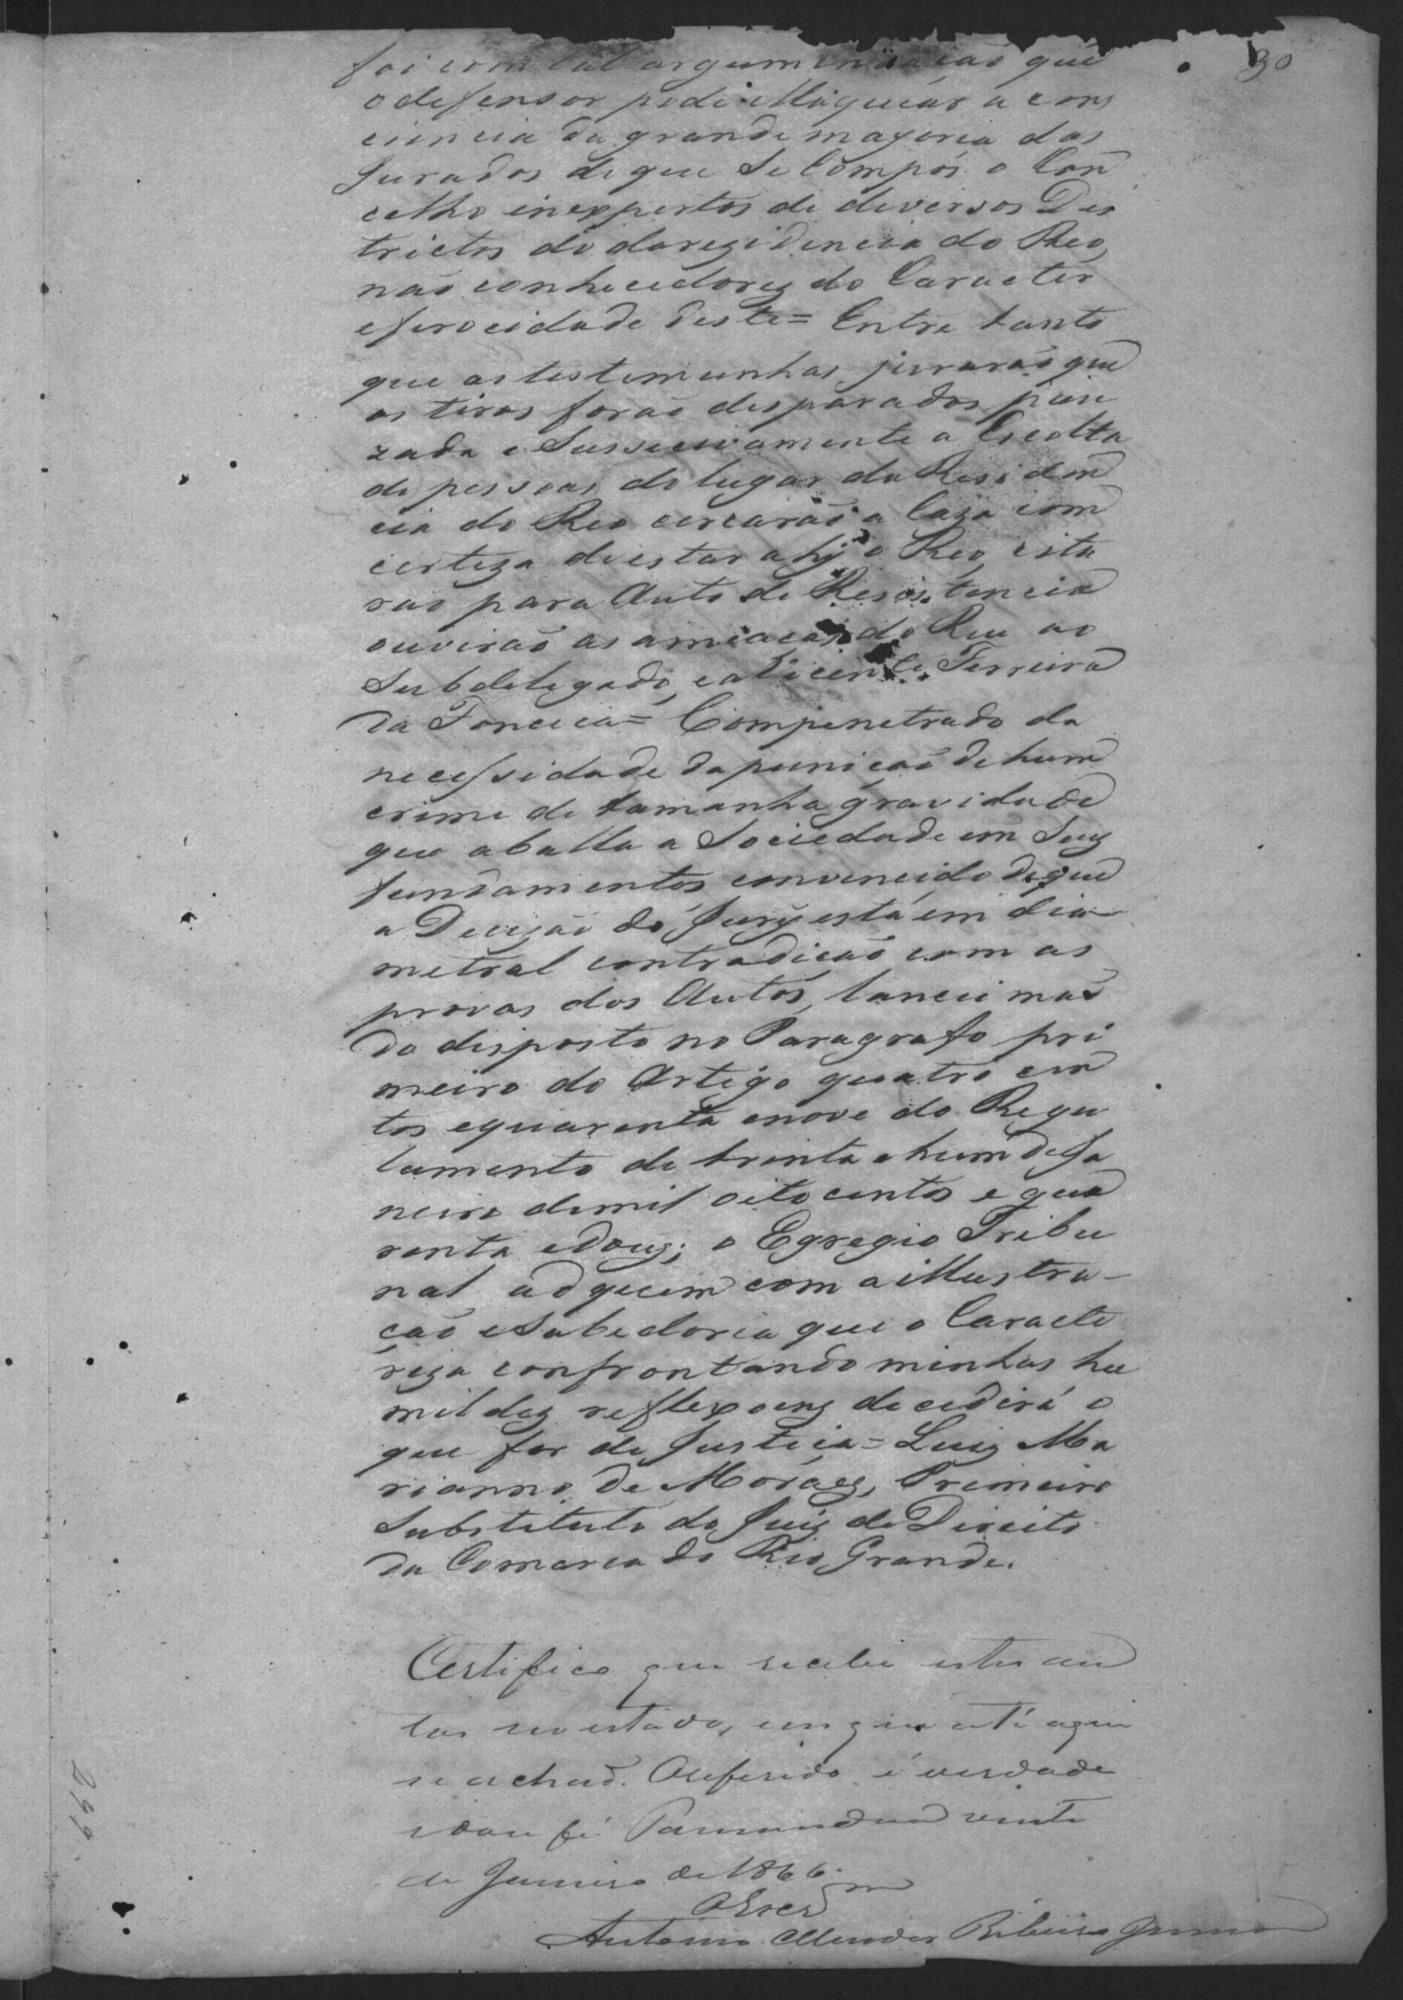 30
foi com tal argumentação que
o defensor pode illaquear a cons
ciencia da grande mayoria dos
Jurados de que se Compôs o Con
celho inexpertos de diversos Des
trictos do da rezidencia do Reo,
não conhecedores do Caracter
e ferocidade deste = Entre tanto
que as testemunhas jurarão que
os tiros forão disparados
zada e Sussecivamente a Escolta
de pessoas do lugar da Residen
cia do Reo cercarão a Caza com
certeza de estar ahi o Reo, e
rão para Auto de Resistencia
ouvirão as ameaças do Reu ao
Subdelegado, e a Vicente Ferreira
da Fonceca = Compenetrado da
necessidade da punição de hum
crime de tamanha gravidade
que aballa a Sociedade em Seus
fundamentos convencido de que
a Decizão do Jury está em dia
metral contradicão com as
provas dos Autos, lancei mão
do disposto no Paragrafo pri
meiro do Artigo quatro cen
tos e quarenta e nove do Regu
lamento de trinta e hum de Ja
neiro de mil oito centos e qua
renta e dous; o Egregio Tribu
nal ad quem com a illustra-
ção e Sabedoria que o Caracte
riza confrontando minhas hu
mildes reflexoens decedirá o
que for de Justiça = Luiz Ma
rianno de Moraes, Primeiro
Substituto do Juiz de Direito
da Comarca do Rio Grande.
Certifico que recebi estes au
tos no estado, em que até aqui
se achão. O referido é verdade
e dou fé. Parnundua vinte
de Janeiro de 1866.
O Escr.am
Antonio Mendes Ribeiro Junior
299